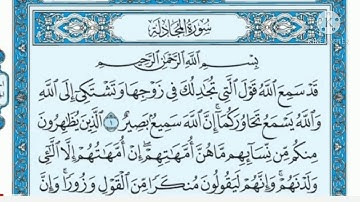 سُورَةُ المُجَادلَةِ
بِسْمِ اللَّهِ الرَّحْمَٰنِ الرَّحِيمِ
قَدْ سَمِعَ اللَّهُ قَوْلَ الَّتِي تُجَادِلُكَ فِي زَوْجِهَا وَتَشْتَكِي إِلَى اللَّهِ
وَاللَّهُ يَسْمَعُ تَحَاوُرَكُمَا إِنَّ اللَّهَ سَمِيعٌ بَصِيرٌ ١ الَّذِينَ يُظَاهِرُونَ
مِنكُم مِّن نِّسَائِهِم مَّا هُنَّ أُمَّهَاتِهِمْ إِنْ أُمَّهَاتُهُمْ إِلَّا الَّٰٓـِٔي
وَلَدْنَهُمْ وَإِنَّهُمْ لَيَقُولُونَ مُنكَرًا مِّنَ الْقَوْلِ وَزُورًا وَإِنَّ